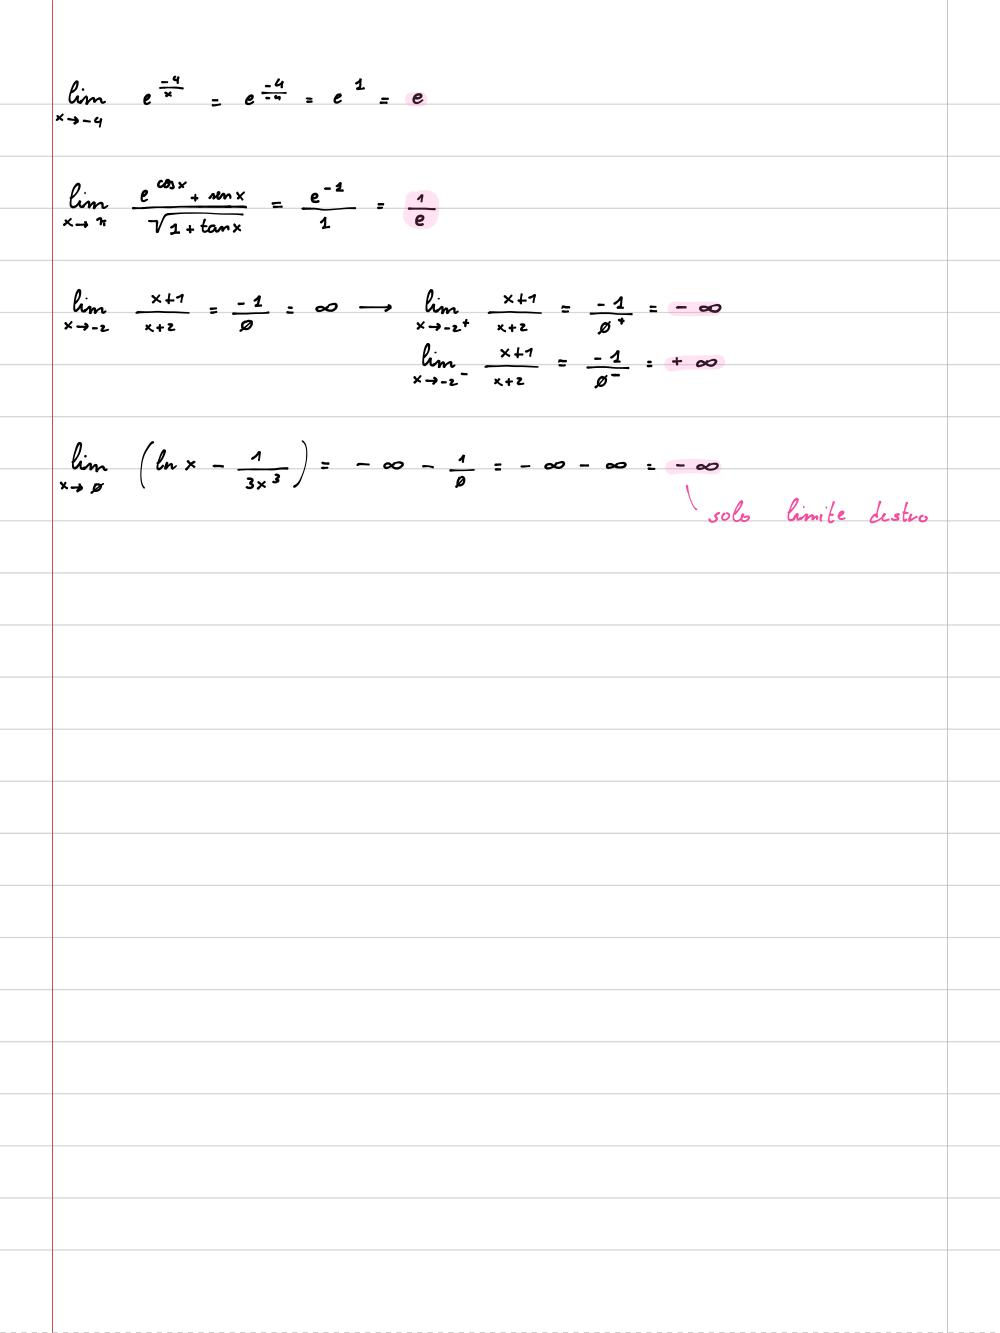 lim x→-4 e^(-4/x) = e^(-4/-4) = e^1 = e
lim x→π (e^(cos x) + sen x)/√(1 + tan x) = e^(-1)/1 = 1/e
lim x→-2 (x+1)/(x+2) = -1/0 = ∞ → lim x→-2⁺ (x+1)/(x+2) = -1/0⁺ = -∞
lim x→-2⁻ (x+1)/(x+2) = -1/0⁻ = +∞
lim x→0 (ln x - 1/(3x³)) = -∞ - 1/0 = -∞ - ∞ = -∞
solo limite destro